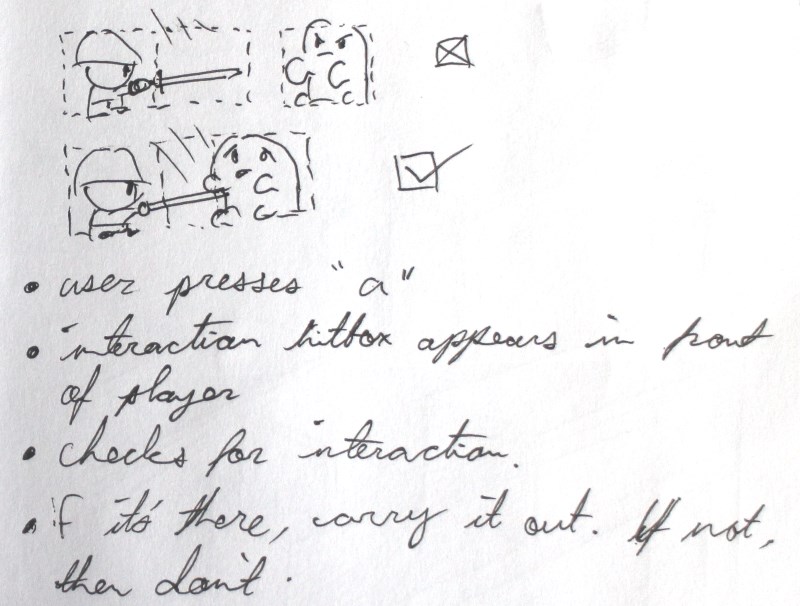 • user presses "a"
• interaction hitbox appears in front
of player
• checks for interaction.
• if it's there, carry it out. If not,
then don't.